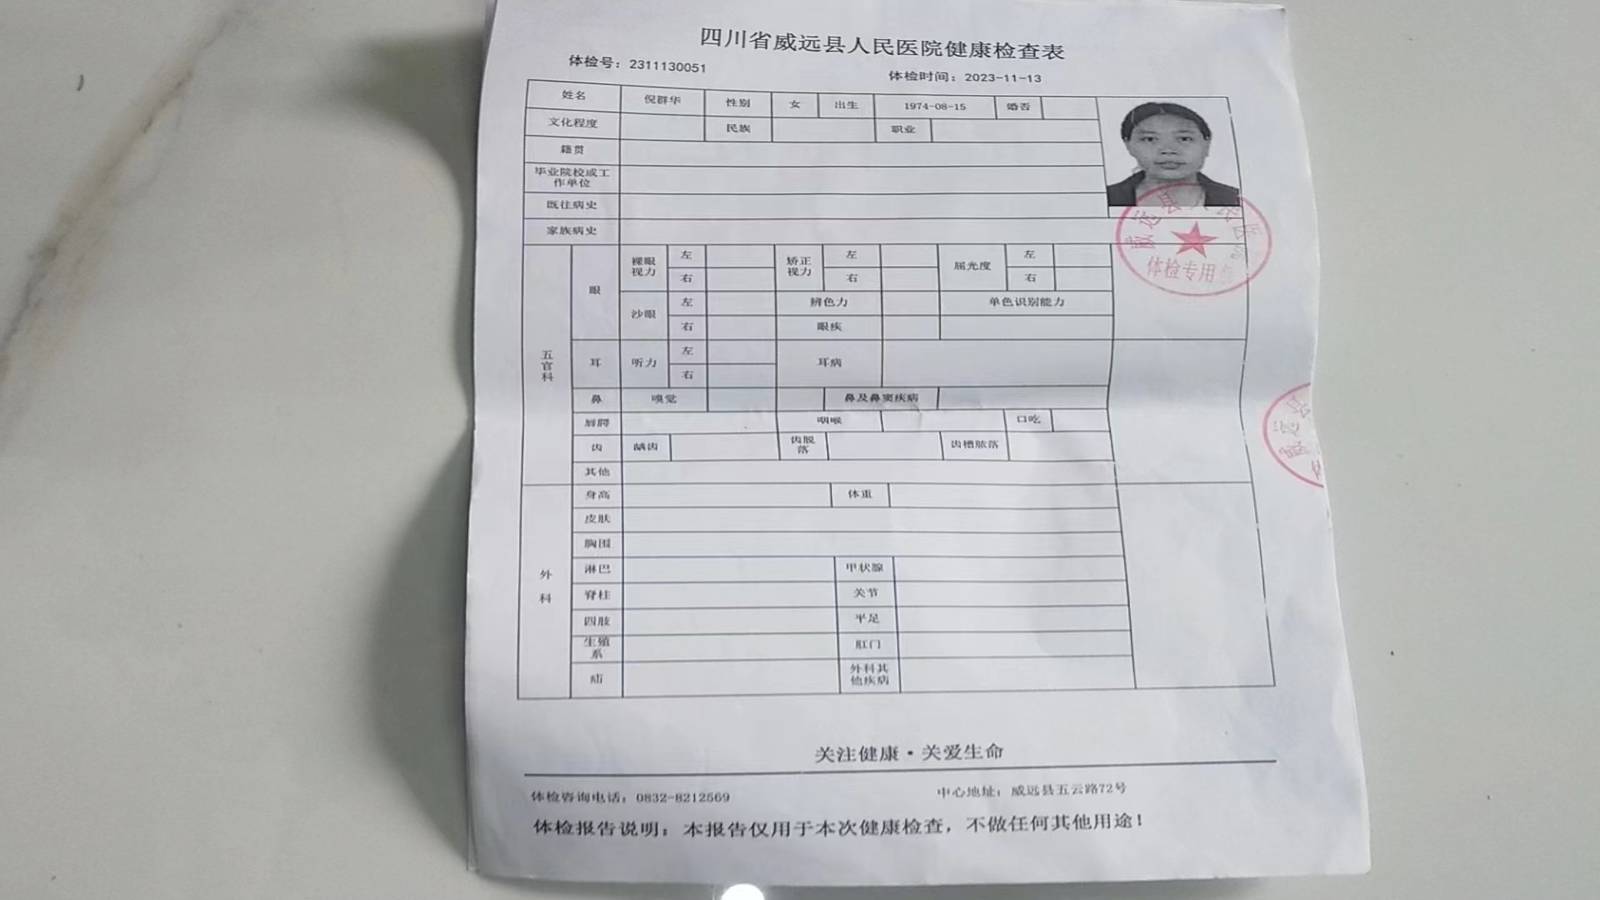 四川省威远县人民医院健康检查表
体检号：2311130051 体检时间：2023-11-13
姓名 倪群华 性别 女 出生 1974-08-15 婚否
文化程度 民族 职业
籍贯
毕业院校或工作单位
既往病史
家族病史
五官科
眼 裸眼视力 左 右 矫正视力 左 右 屈光度 左 右
沙眼 左 右 辨色力 单色识别能力
眼疾
耳 听力 左 右 耳病
鼻 嗅觉 鼻及鼻窦疾病
唇腭 咽喉 口吃
齿 龋齿 齿脱落 齿槽脓落
其他
外科
身高 体重
皮肤
胸围
淋巴 甲状腺
脊柱 关节
四肢 平足
生殖系 肛门
疝 外科其他疾病
威远县人民医院
体检专用
威远县
关注健康·关爱生命
体检咨询电话：0832-8212569 中心地址：威远县五云路72号
体检报告说明：本报告仅用于本次健康检查，不做任何其他用途！